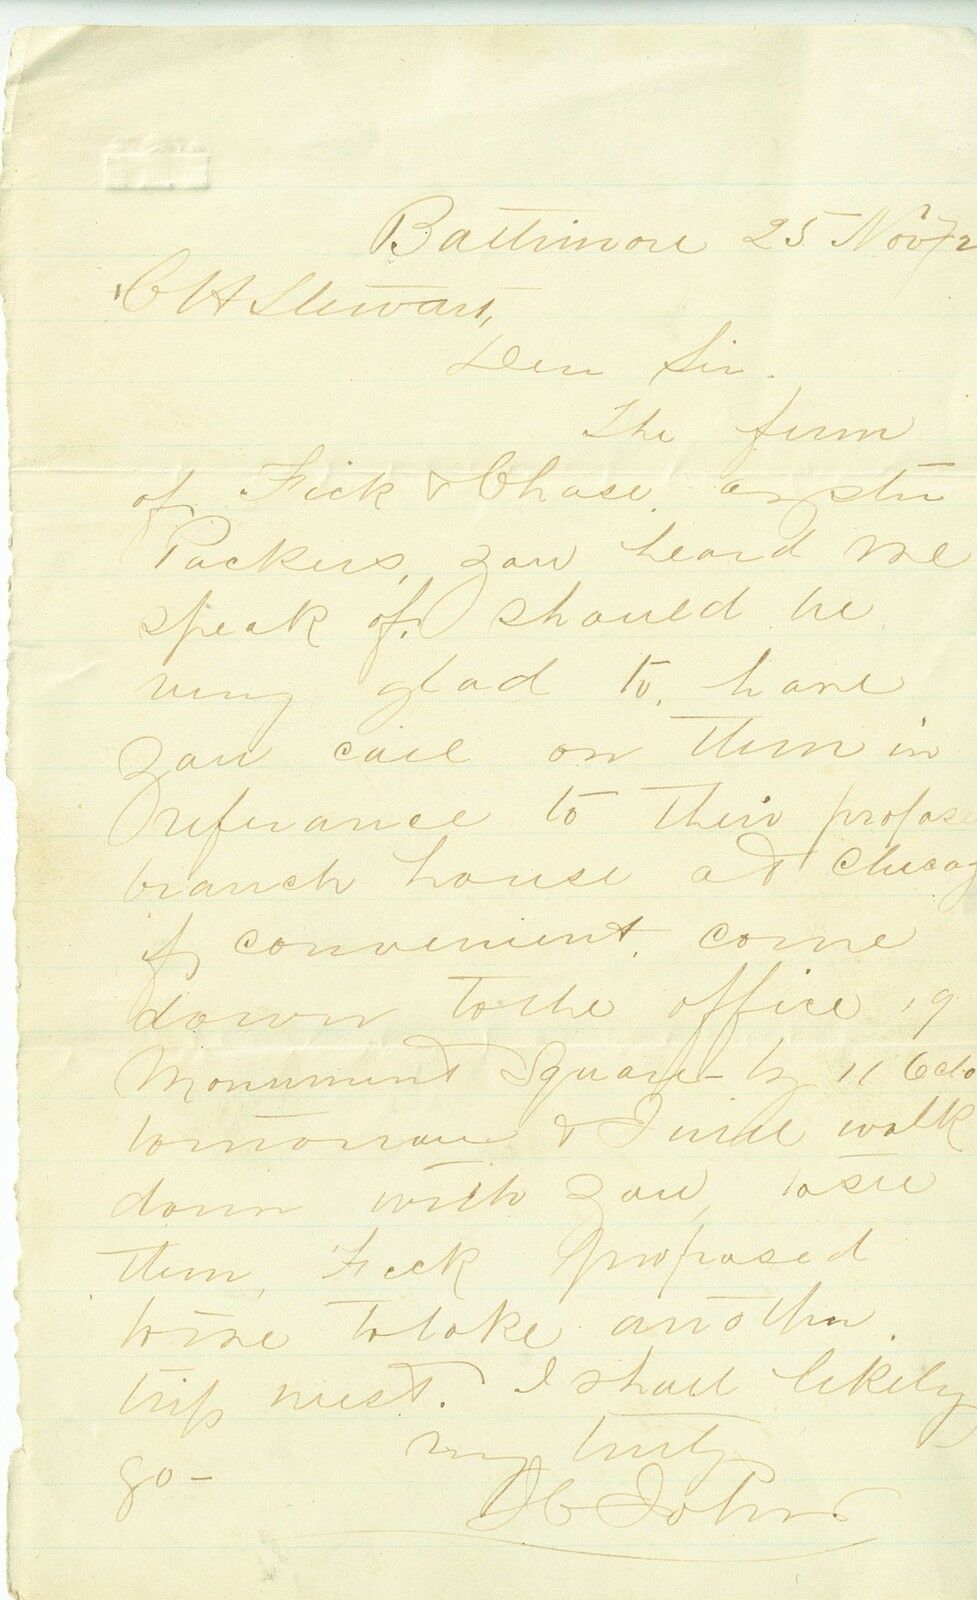 Baltimore 25 Nov 72
C H Stewart,
Dear Sir.
The firm
of Fick & Chase, oyster
Packers, you heard me
speak of, should be
very glad to, have
you call on them in
referance to their propos
branch house at Chicag
if convenient, come
down to the office 19
Monument Square by 11 Oclo
tomorrow & I will walk
down with you, to see
them, Fick proposed
to me to take another
trip west. I shall likely
go -
very truly
D C Johns